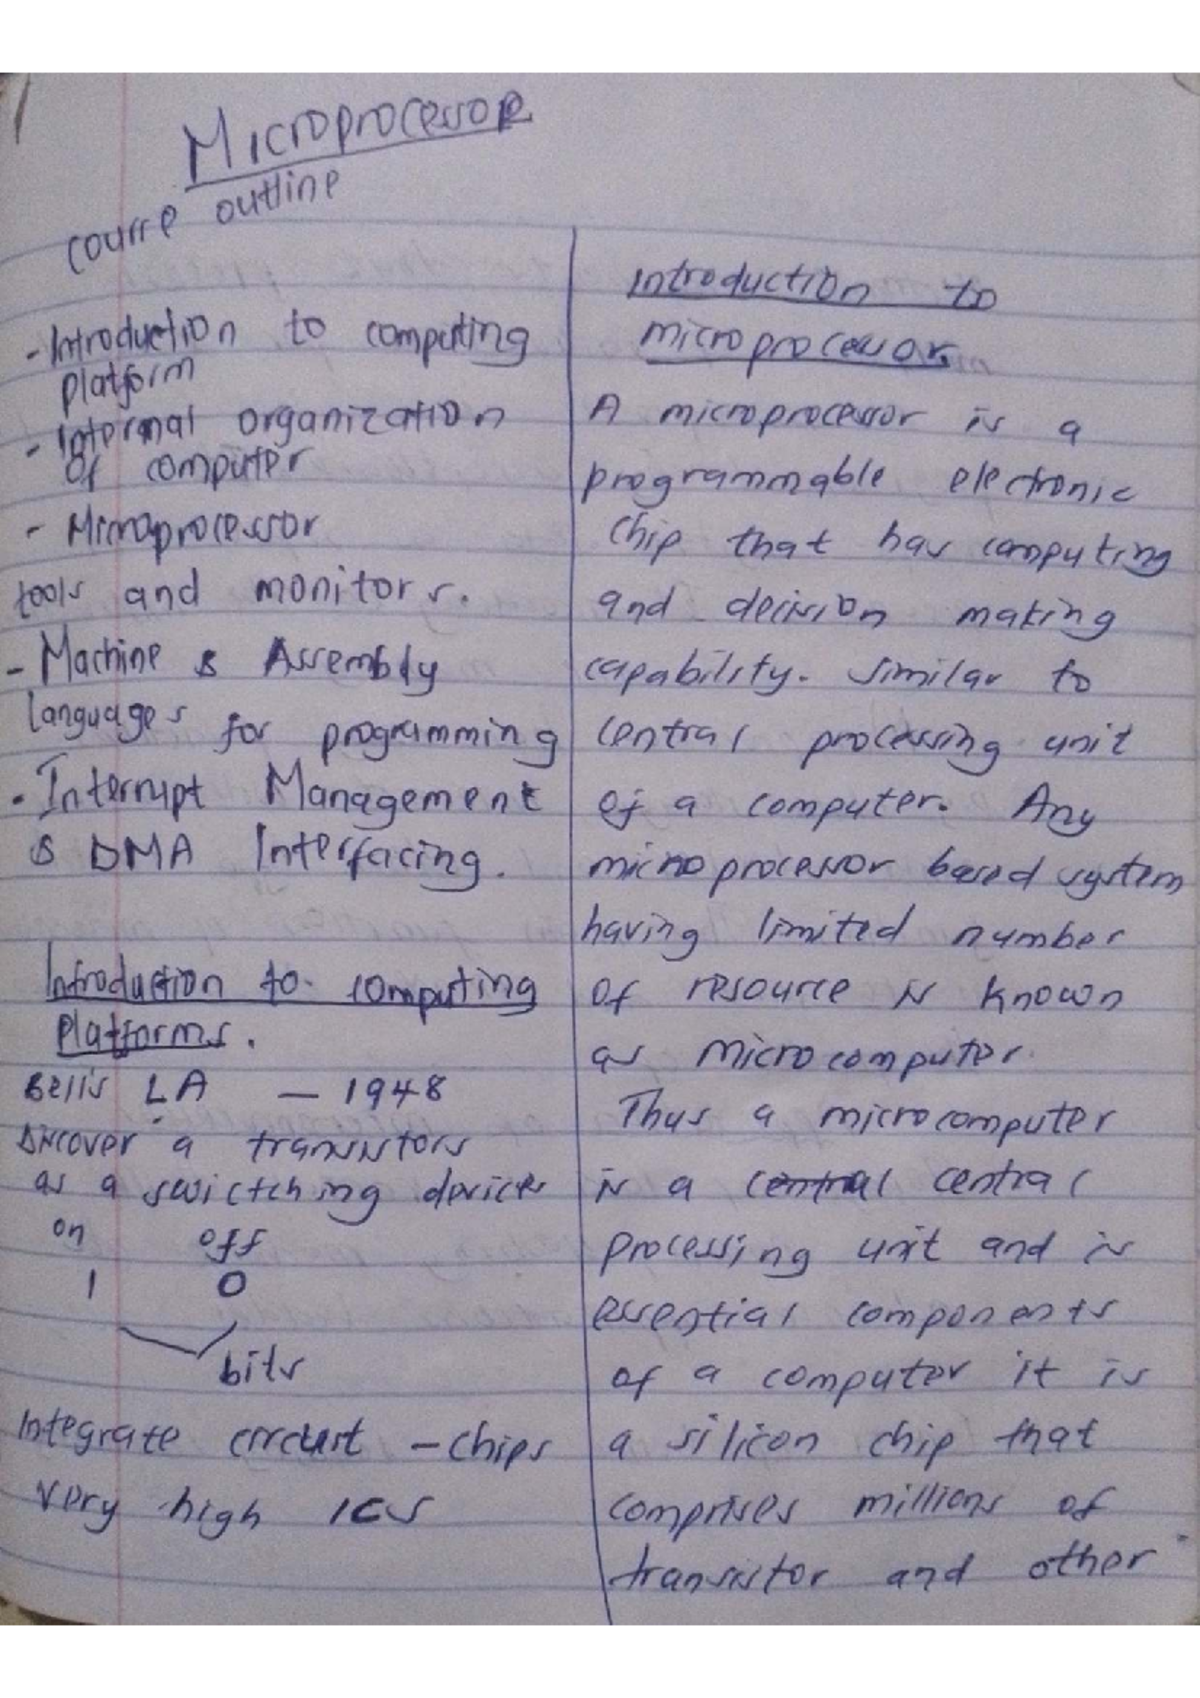 Microprocessor
course outline
- Introduction to computing
platform
- Internal organization
of computer
- Microprocessor
tools and monitors.
- Machine & Assembly
languages for programming
- Interrupt Management
& DMA Interfacing.
Introduction to computing
Platforms.
Bells LA — 1948
Discover a transistors
as a swictching devices
on off
1 0
bits
Integrate circuit - chips
very high ICs
Introduction to
microprocessor
A microprocessor is a
programmable electronic
chip that has computing
and decision making
capability. similar to
central processing unit
of a computer. Any
microprocessor based system
having limited number
of resource is known
as microcomputer.
Thus a microcomputer
is a central central
processing unit and is
essential components
of a computer it is
a silicon chip that
comprises millions of
transistor and other